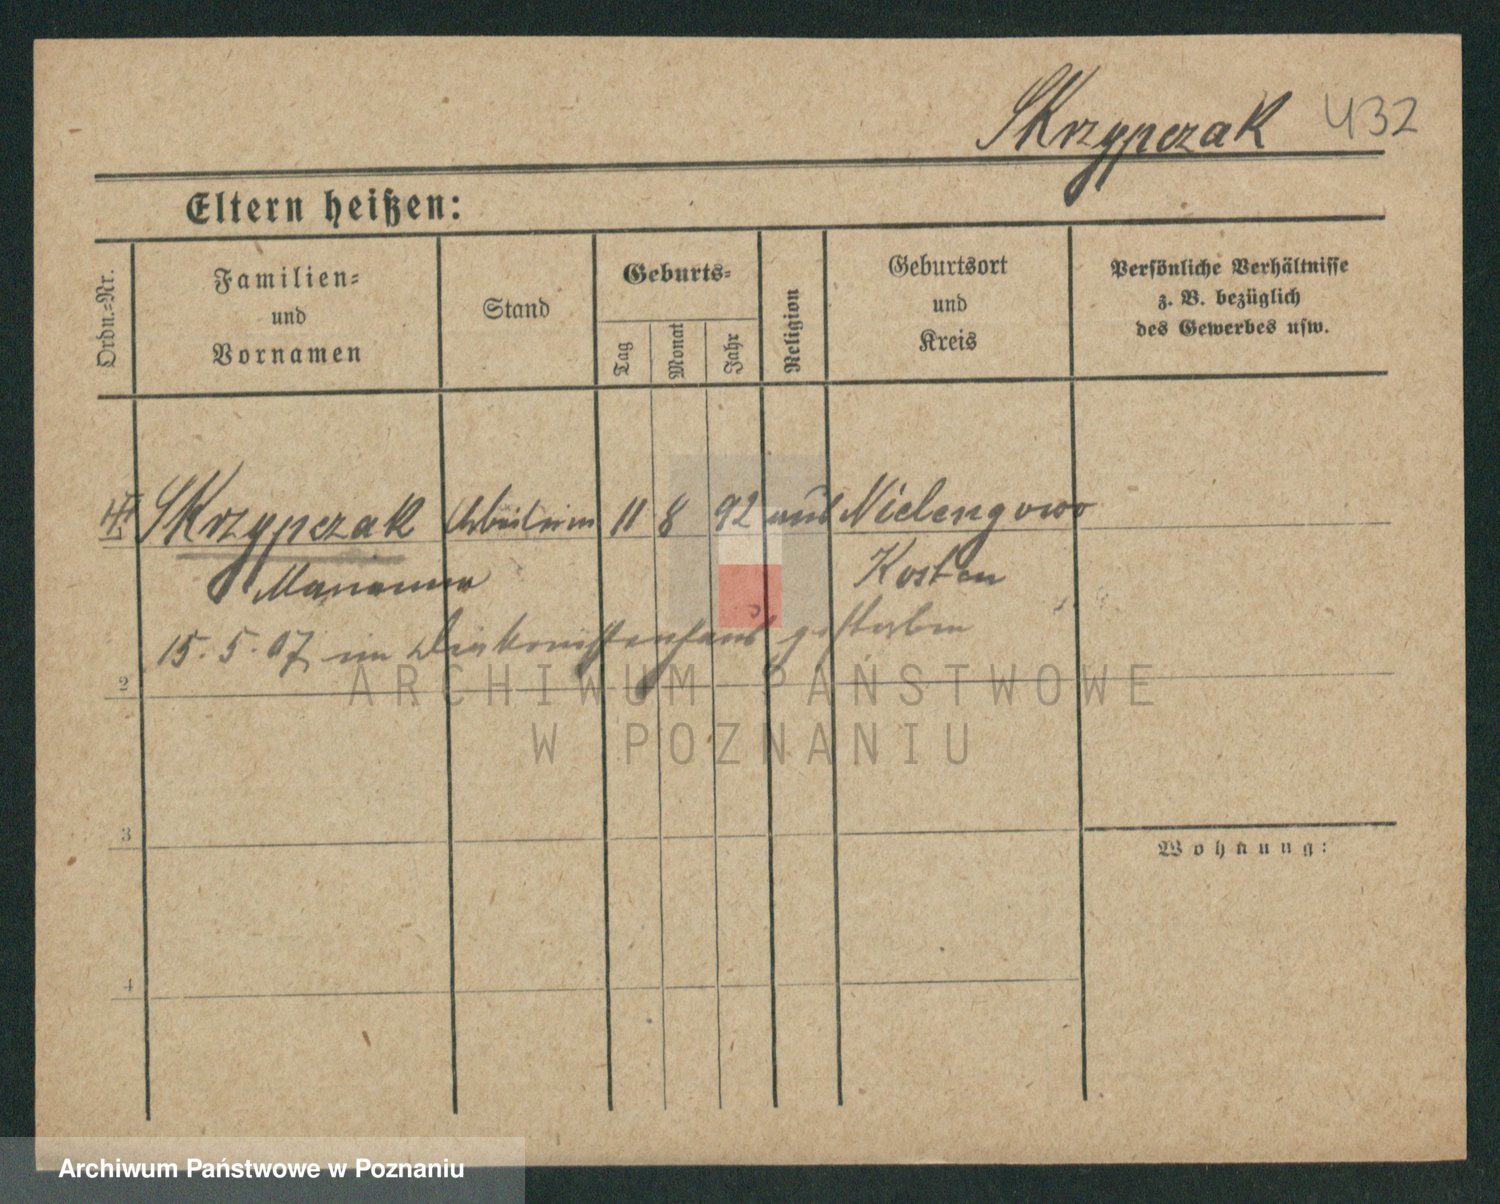 Skrzypczak 432
Eltern heißen:
Ordn.=Nr.
Familien=
und
Vornamen
Stand
Geburts=
Tag
Monat
Jahr
Religion
Geburtsort
und
Kreis
Persönliche Verhältnisse
z. B. bezüglich
des Gewerbes usw.
Skrzypczak Arbeiterin 11 8 92 Nielengowo
Marianna Kosten
15. 5. 07 im Diakonissenhaus gestorben
2
3
4
Wohnung:
ARCHIWUM PAŃSTWOWE
W POZNANIU
Archiwum Państwowe w Poznaniu